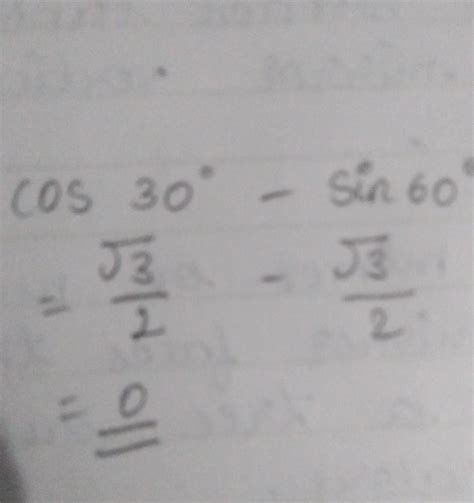 cos 30° - sin 60°
= √3/2 - √3/2
= 0